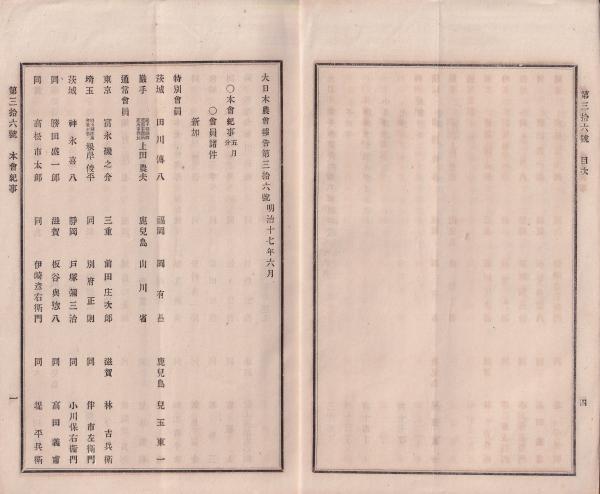 第三拾六號　目次
四
大日本農會報告第三拾六號　明治十七年六月
〇本會紀事　五月分
〇會員諸件
新加
特別會員
茨城　田川傳八　福岡　岡有邑　鹿兒島　兒玉東一
巖手　上田農夫　鹿兒島　山川省
通常會員
東京　富永磯之介　三重　前田庄次郎　滋賀　林吉兵衛
埼玉　根岸俊平　同　別府正則　同　伴市左衛門
茨城　神永喜八　靜岡　戸塚彌三治　同　小川保右衛門
同　勝田盛一郎　滋賀　板谷與惣八　同　富田義甫
同　高松市太郎　同　伊崎彦右衛門　同　堤平兵衛
第三拾六號　本會紀事
一